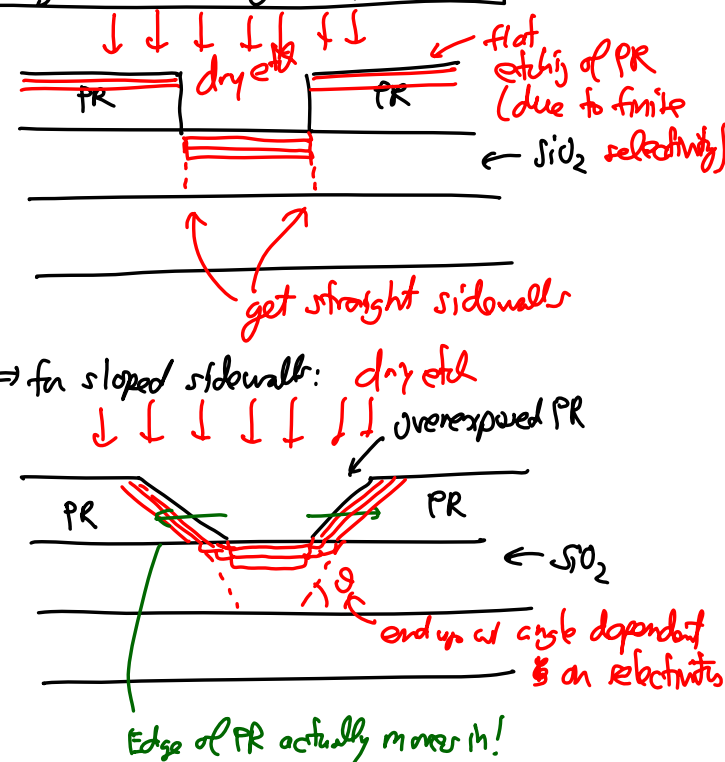 dry etch
flat
etching of PR
(due to finite
selectivity)
PR
PR
← SiO2
get straight sidewalls
⇒ for sloped sidewalls: dry etch
overexposed PR
PR
PR
← SiO2
θ
end up w/ angle dependent
on selectivity
Edge of PR actually moves in!